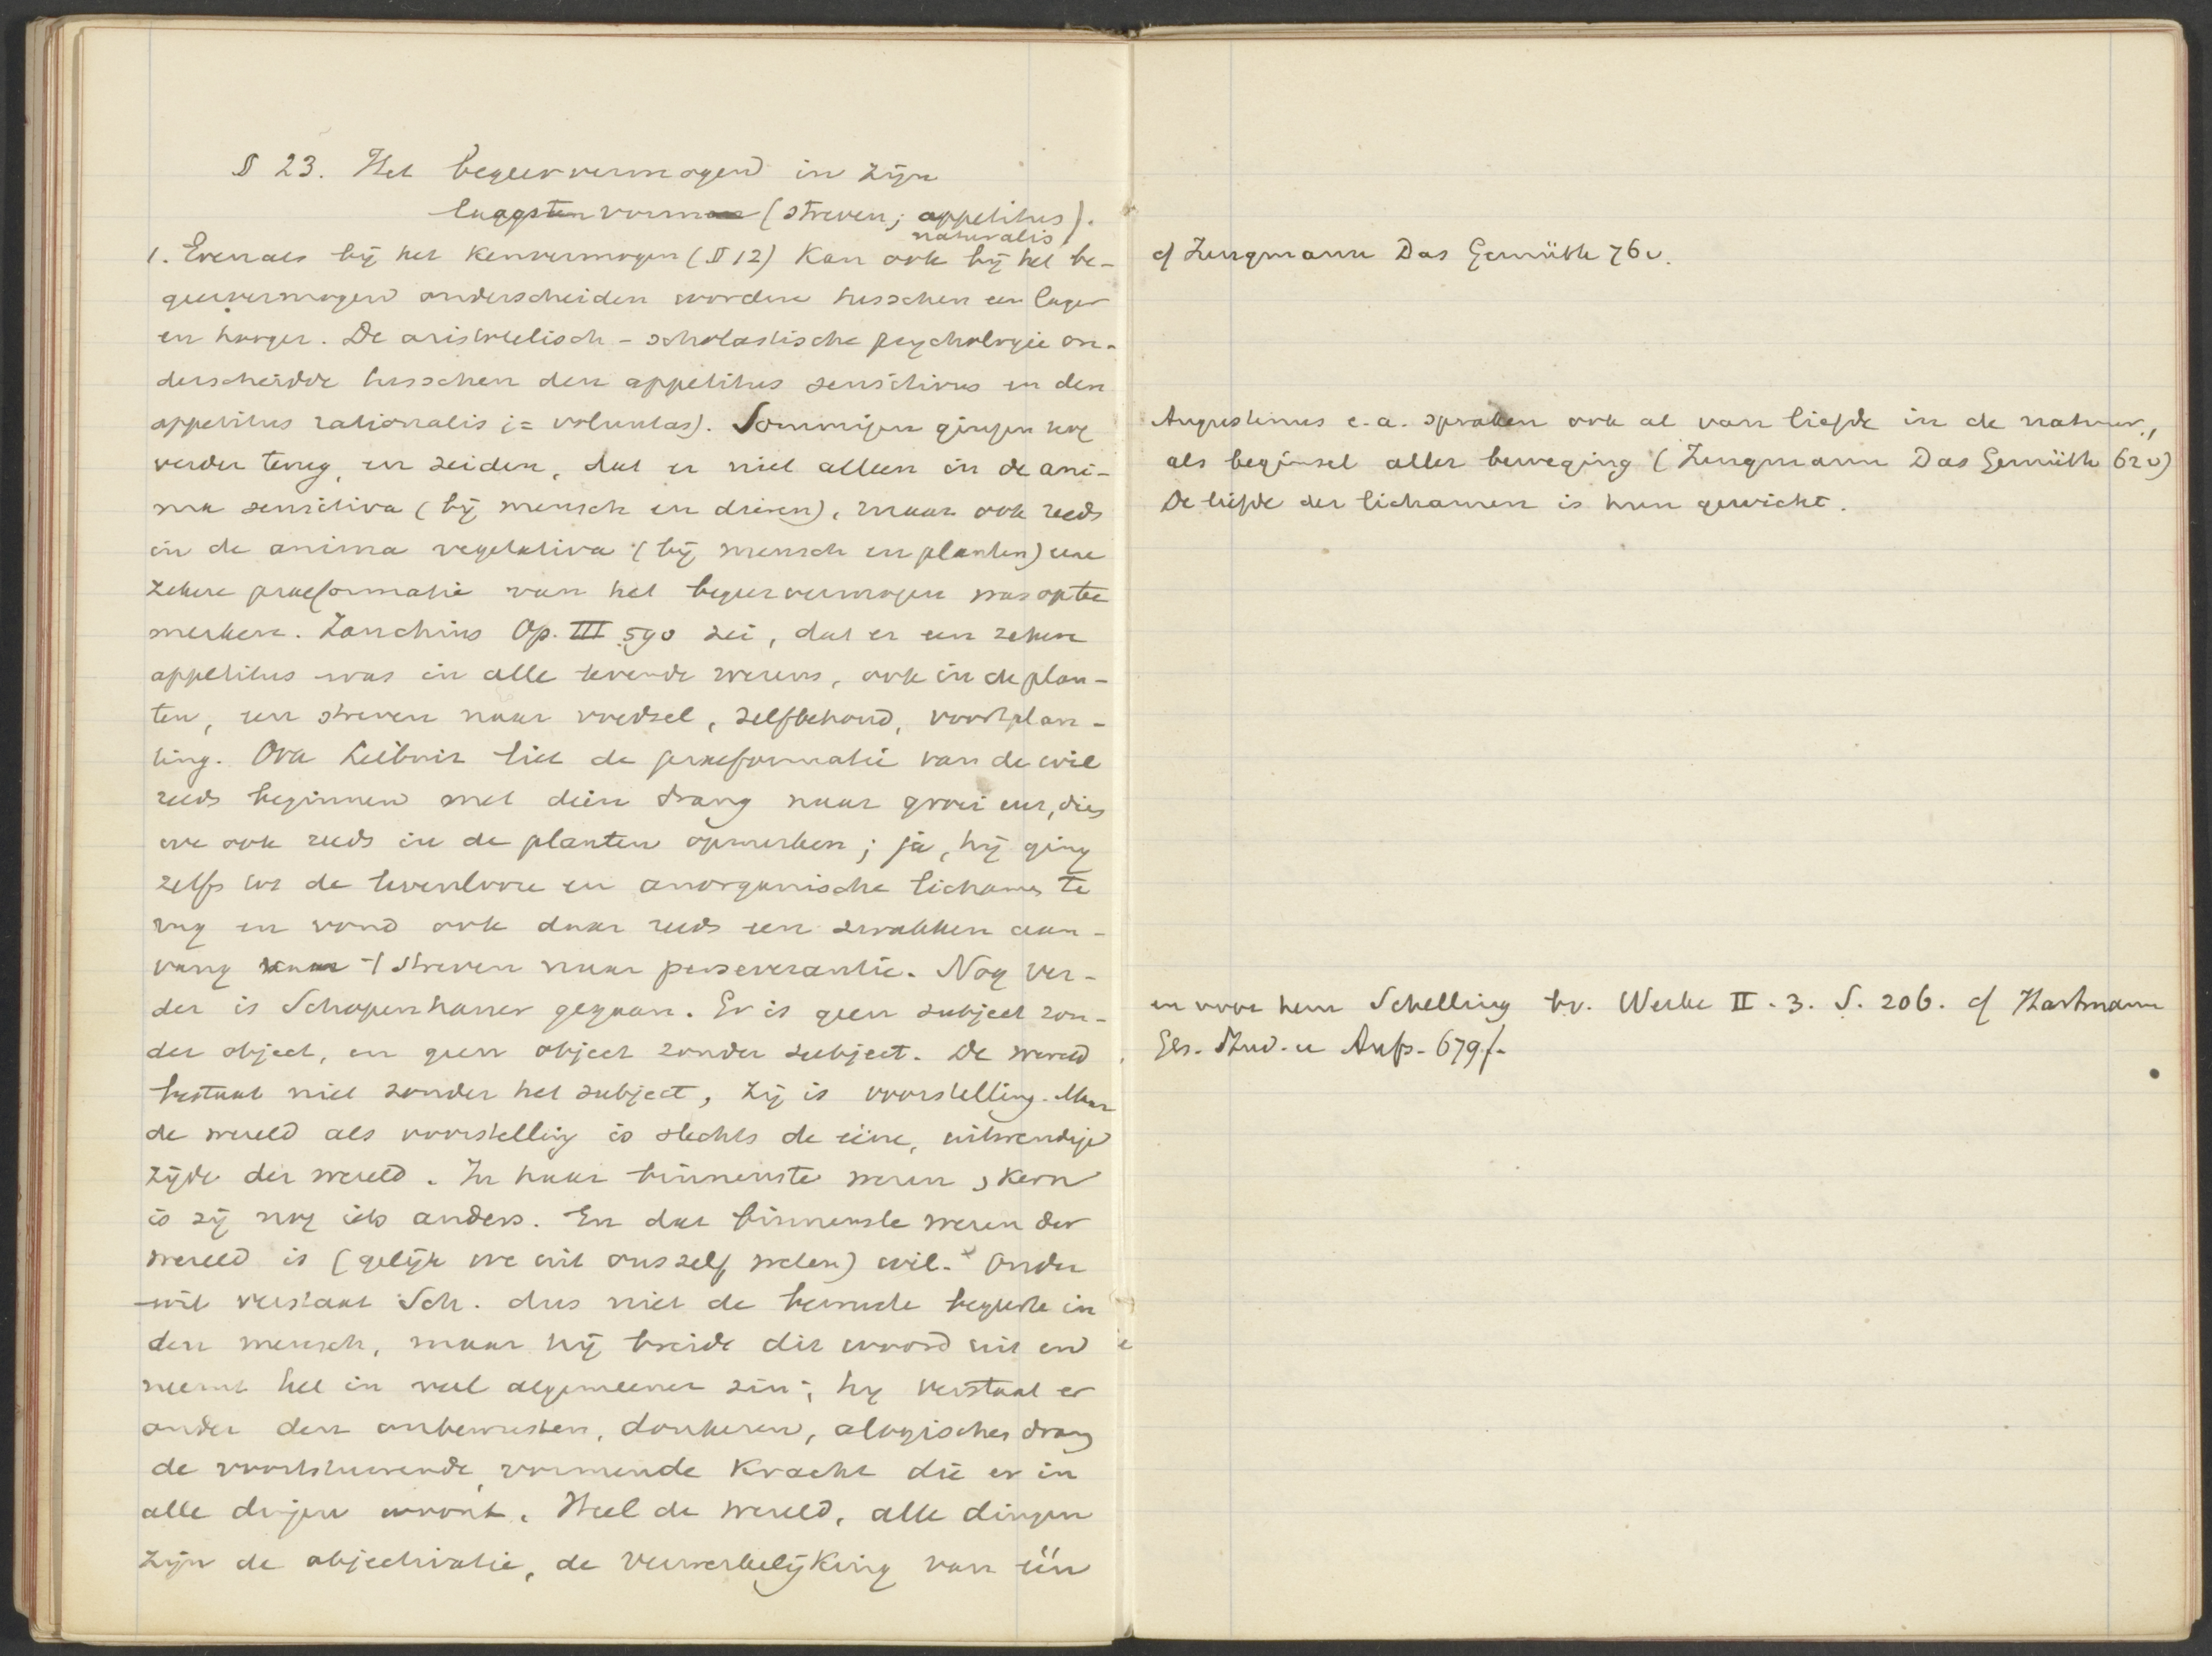 § 23. Het begeervermogen in zijn
laagsten vorm (streven; appetitus
naturalis).
1. Evenals bij het kenvermogen (§ 12) kan ook bij het be-
geervermogen onderscheiden worden tusschen een lager
en hooger. De aristotelisch-scholastische psychologie on-
derscheidde tusschen den appetitus sensitivus en den
appetitus rationalis (= voluntas). Sommigen gingen nog
verder terug, en zeiden, dat er niet alleen in de ani-
ma sensitiva (bij mensch en dieren), maar ook reeds
in de anima vegetativa (bij mensch en planten) eene
zekere praeformatie van het begeervermogen was op te
merken. Zanchius Op. III 590 zei, dat er een zekere
appetitus was in alle levende wezens, ook in de plan-
ten, een streven naar voedsel, zelfbehoud, voortplan-
ting. Ook Leibniz liet de praeformatie van de wil
reeds beginnen met dien drang naar groei enz, dien
we ook reeds in de planten opmerken; ja, hij ging
zelfs tot de levenlooze en anorganische lichamen te
rug en vond ook daar reeds een zwakken aan-
vang v/h streven naar perseverantie. Nog ver-
der is Schopenhauer gegaan. Er is geen subject zon-
der object, en geen object zonder subject. De wereld
bestaat niet zonder het subject, zij is voorstelling. Maar
de wereld als voorstelling is slechts de eene, uitwendige
zijde der wereld. In haar binnenste wezen, kern
is zij nog iets anders. En dat binnenste wezen der
wereld is (gelijk we uit ons zelf weten) wil. Onder
wil verstaat Sch. dus niet de bewuste begeerte in
den mensch, maar hij breidt dit woord uit en
neemt het in veel algemeener zin; hij verstaat er
onder den onbewusten, donkeren, alogischen drang
de voortstuwende, vormende kracht die er in
alle dingen woont. Heel de wereld, alle dingen
zijn de objectivatie, de verwerkelijking van één
cf Jungmann Das Gemüth 76v.
Augustinus e.a. spraken ook al van liefde in de natuur,
als beginsel aller beweging (Jungmann Das Gemüth 62v)
De liefde der lichamen is hun gewicht.
en voor hem Schelling bv. Werke II. 3. S. 206. cf Hartmann
Ges. Stud. u Aufs. 679f.